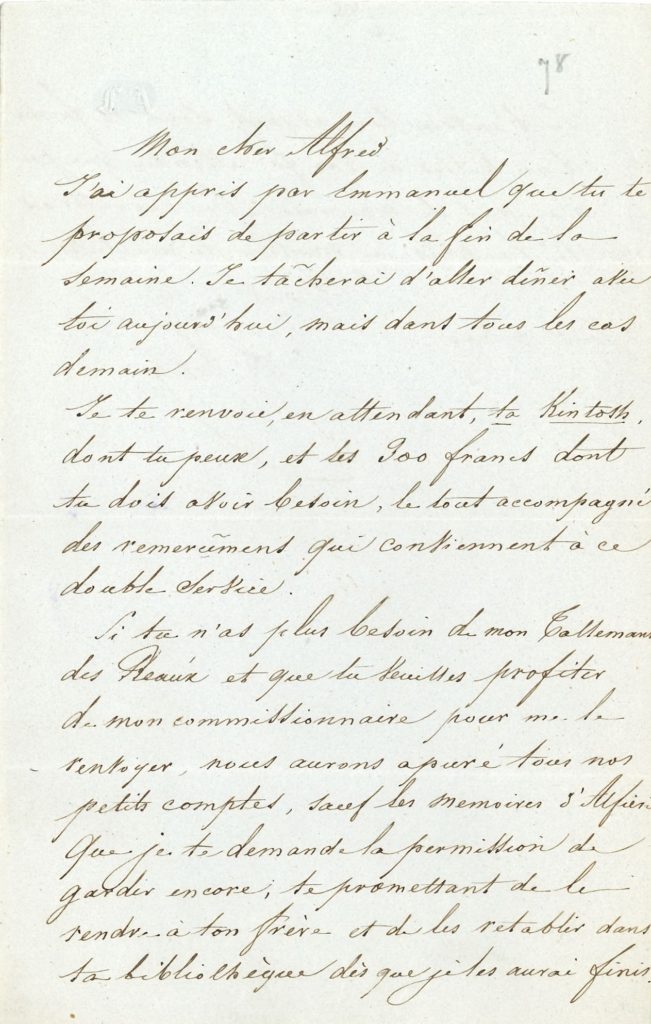 78
Mon cher Alfred
J'ai appris par Emmanuel que tu te
proposais de partir à la fin de la
semaine. Je tâcherai d'aller dîner avec
toi aujourd'hui, mais dans tous les cas
demain.
Je te renvoie, en attendant, ta Kintosh,
dont tu peux, et les 900 francs dont
tu dois avoir besoin, le tout accompagné
des remercîmens qui conviennent à ce
double service.
Si tu n'as plus besoin de mon Tallemant
des Reaux et que tu veuilles profiter
de mon commissionnaire pour me le
renvoyer, nous aurons apuré tous nos
petits comptes, sauf les memoires d'Alfieri
que je te demande la permission de
garder encore, te promettant de le
rendre à ton frère et de les retablir dans
ta bibliothèque dès que je les aurai finis.